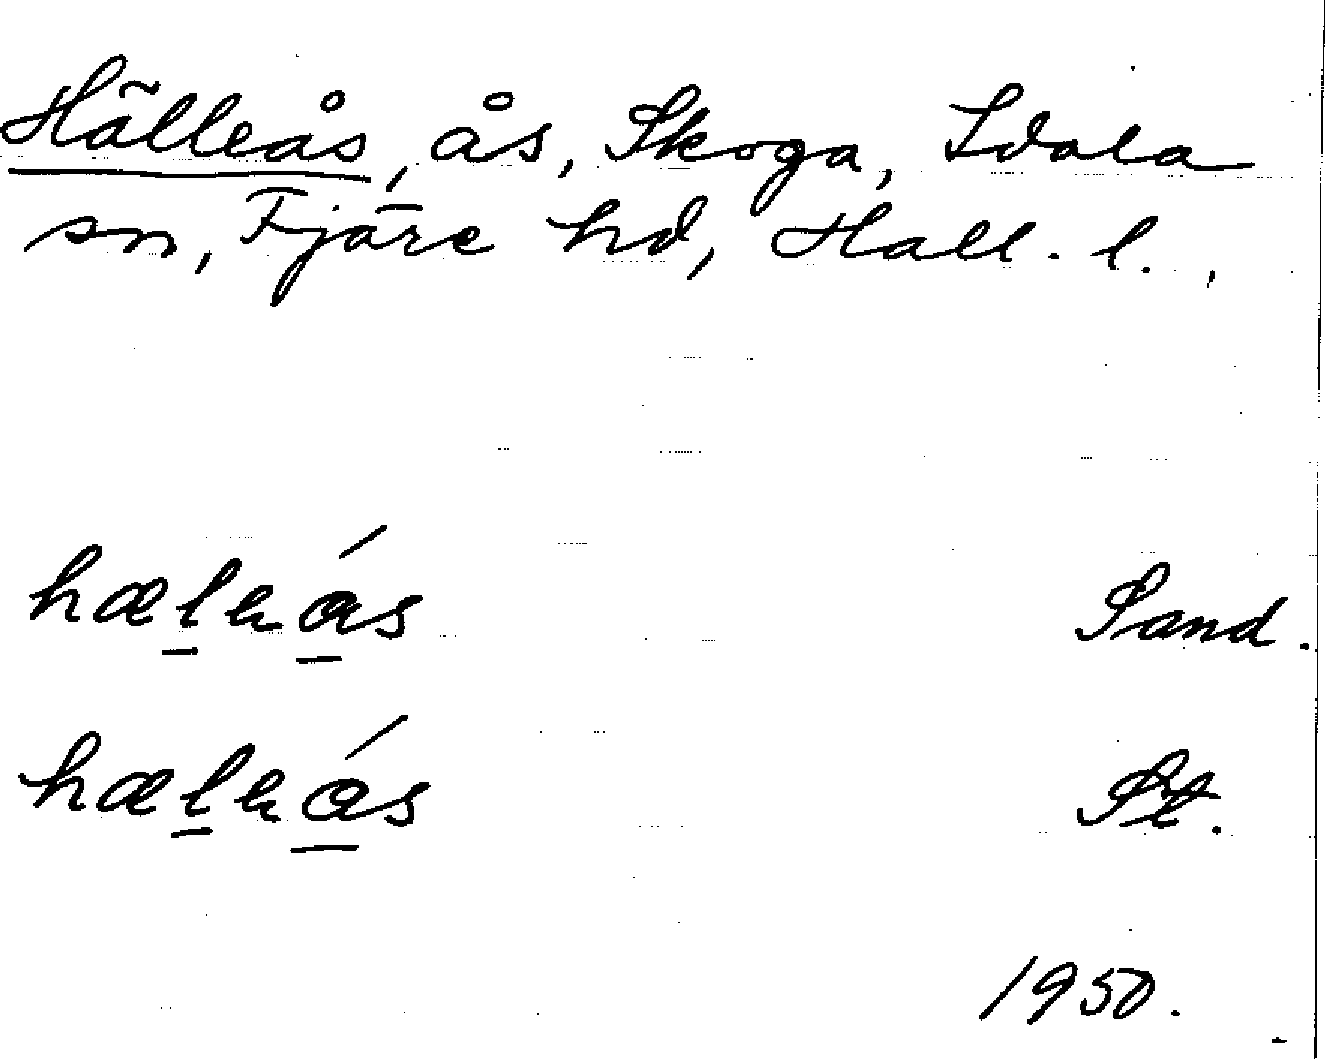 Hälleås, ås, Skoga, Idala
sn, Fjäre hd, Hall. l.
hælɐás Sand.
hælɐás St.
1950.